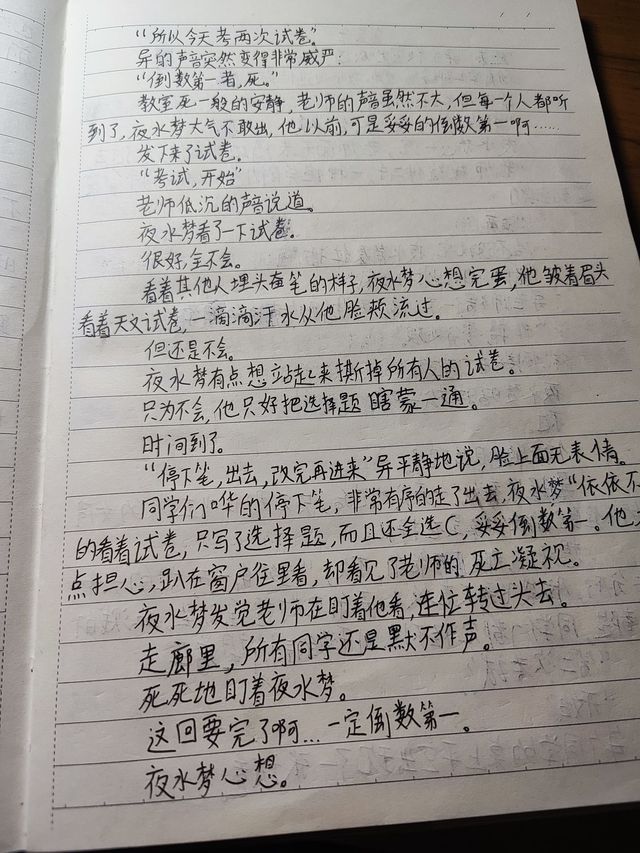 “所以今天考两次试卷”。
异的声音突然变得非常威严：
“倒数第一者，死。”
教室死一般的安静，老师的声音虽然不大，但每一个人都听
到了，夜水梦大气不敢出，他以前，可是妥妥的倒数第一啊……
发下来了试卷。
“考试，开始”
老师低沉的声音说道。
夜水梦看了一下试卷。
很好，全不会。
看着其他人埋头奋笔的样子，夜水梦心想完蛋，他皱着眉头
看着天文试卷，一滴滴汗水从他脸颊流过。
但还是不会。
夜水梦有点想站起来撕掉所有人的试卷。
只为不会，他只好把选择题瞎蒙一通。
时间到了。
“停下笔，出去，改完再进来”异平静地说，脸上面无表情。
同学们哗的停下笔，非常有序的走了出去，夜水梦“依依不
的看着试卷，只写了选择题，而且还全选C，妥妥倒数第一。他
点担心，趴在窗户往里看，却看见了老师的死亡凝视。
夜水梦发觉老师在盯着他看，连忙转过头去。
走廊里，所有同学还是默不作声。
死死地盯着夜水梦。
这回要完了啊…一定倒数第一。
夜水梦心想。